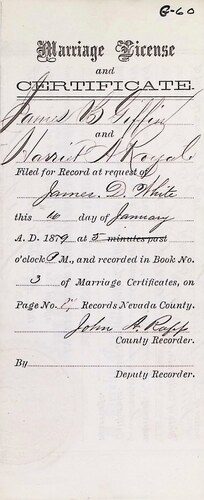 G-60
Marriage License
and
CERTIFICATE.
James B Giffin
and
Harriet A Royal
Filed for Record at request of
James D. White
this 16 day of January
A. D. 1879 at 5 minutes past
o'clock P M., and recorded in Book No.
3 of Marriage Certificates, on
Page No. Records Nevada County.
John A. Rapp
County Recorder.
By
Deputy Recorder.